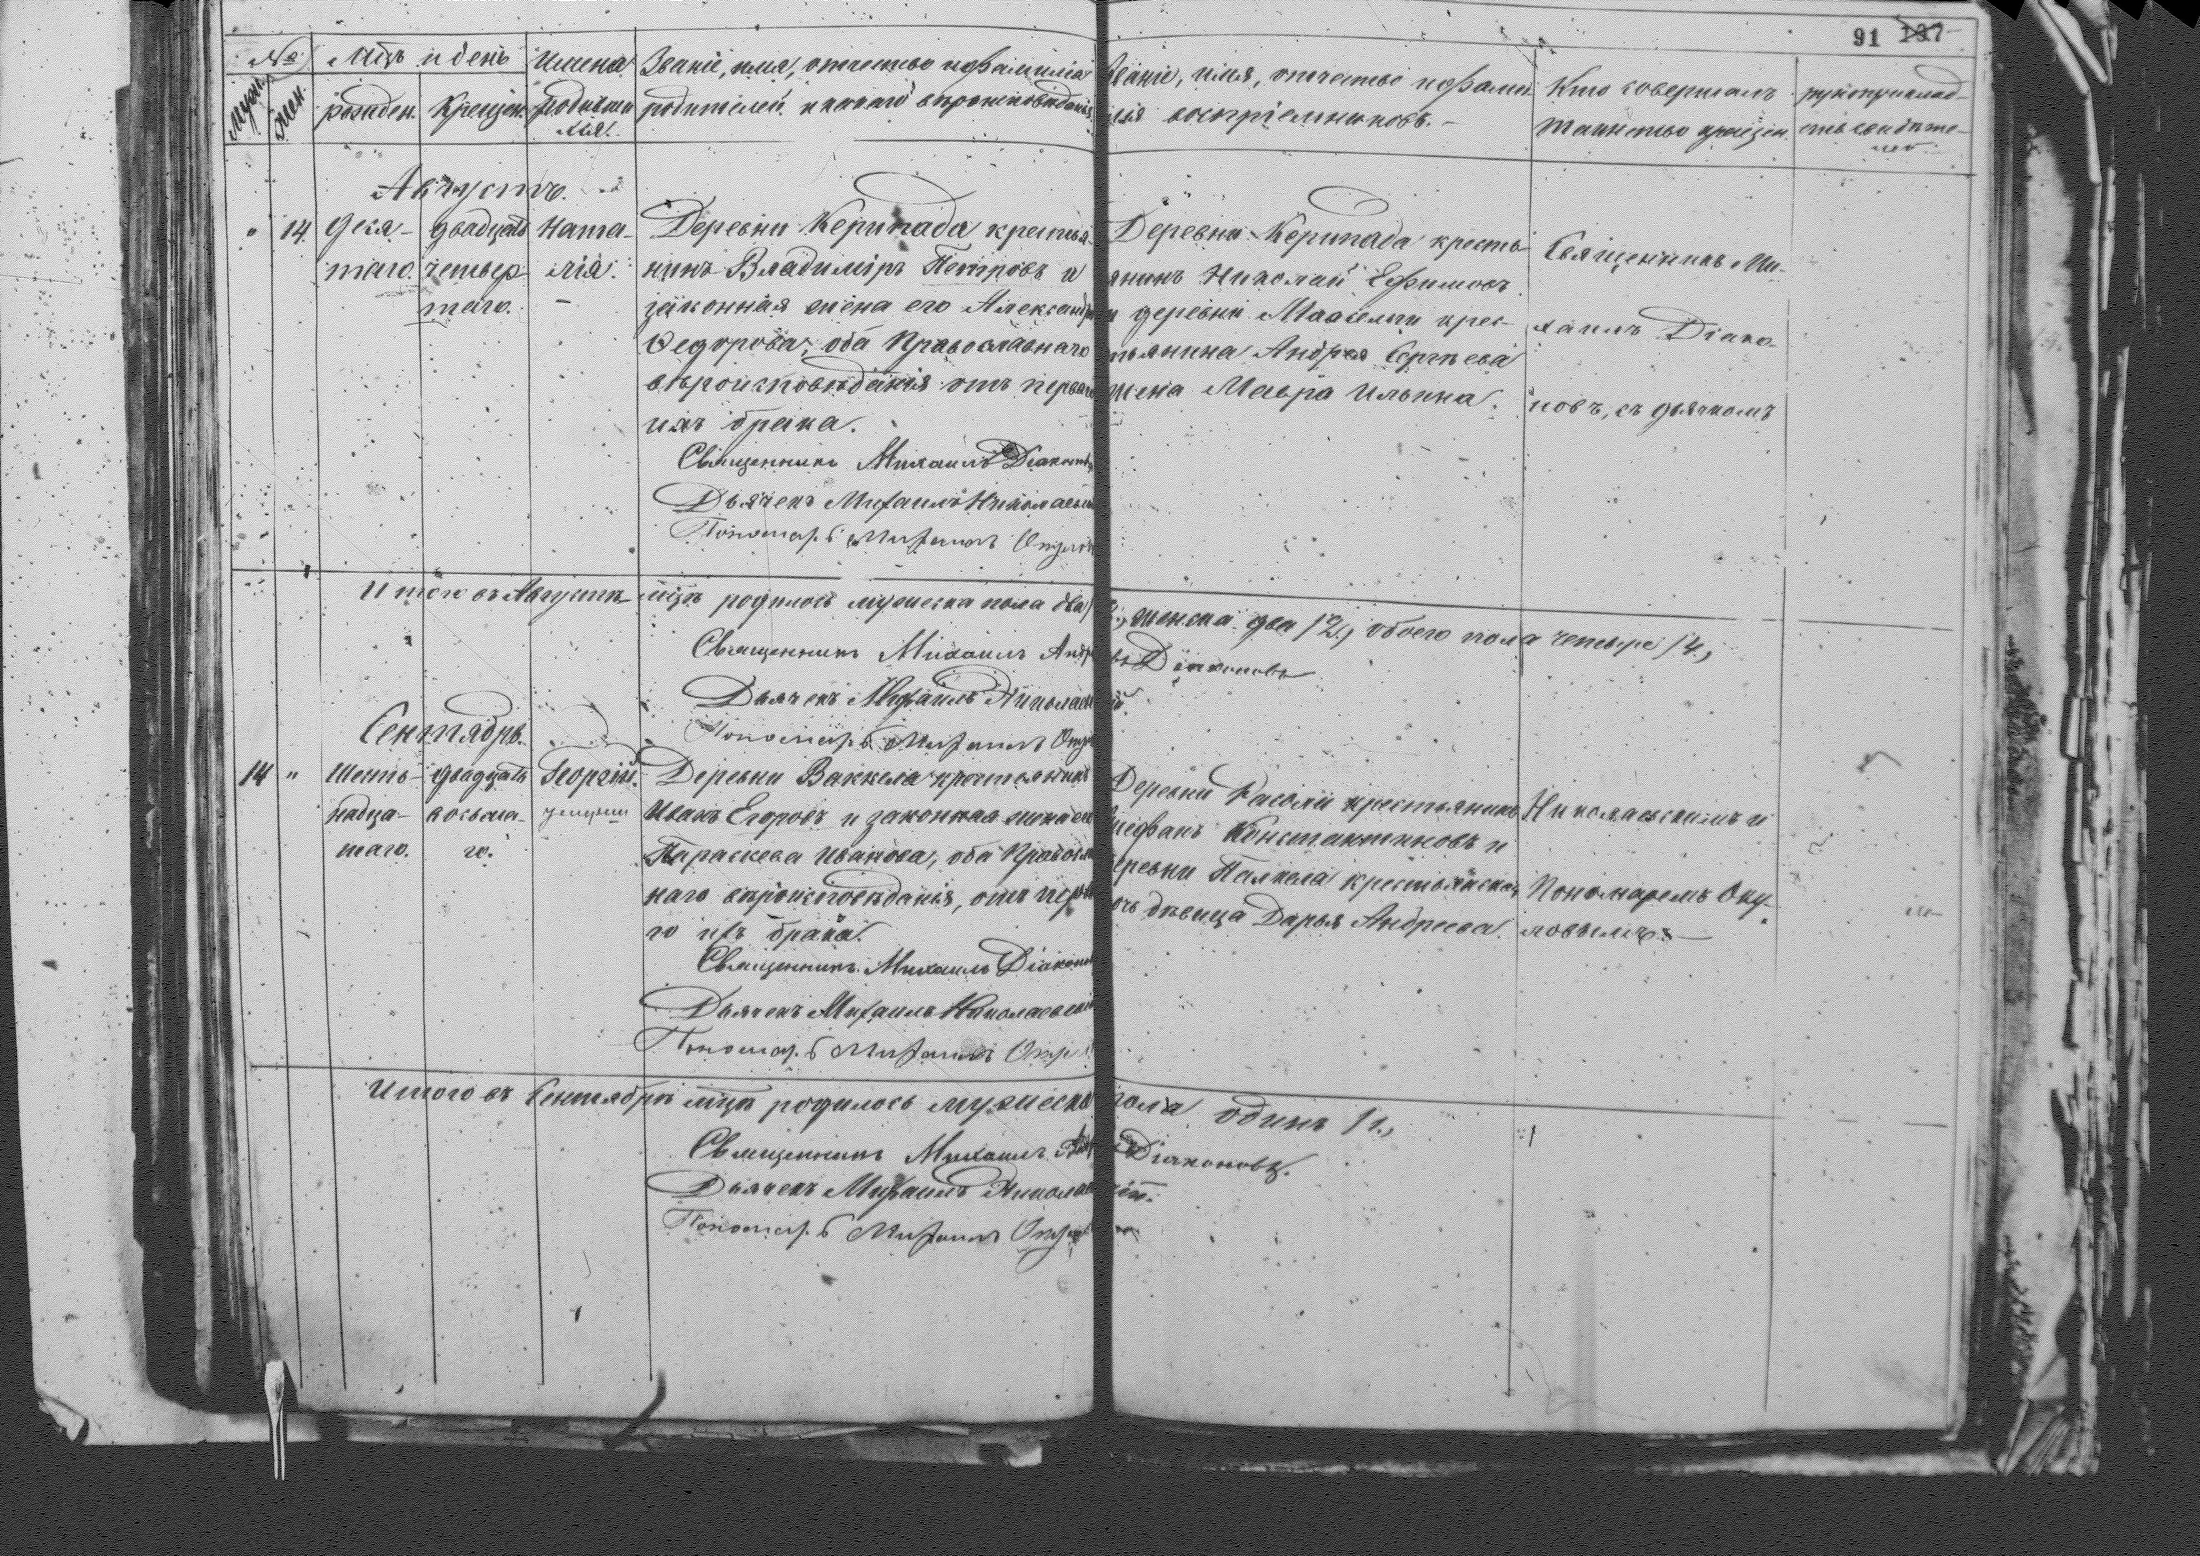 91 137
№ Мцъ и день Имена Званіе, имя, отчество и фамилія
Муж. жен. рожден. Крещен. родившихся родителей и какого вѣроисповѣданія
Званіе, имя, отчество и фамилія воспріемниковъ. Кто совершалъ таинство крещен. рукоприклад-
ство свидѣте-
лей
Августъ.
" 14. Девя- двадцать Ната- Деревни Керипада крестья-
таго четвер- лія нинъ Владиміръ Петровъ и
таго. законная жена его Александра
Ѳедорова, оба Православнаго
вѣроисповѣданія отъ перваго
ихъ брака.
Священникъ Михаилъ Діаконовъ
Дьячекъ Михаилъ Николаевскій
Пономарь Михаилъ
Деревни Керипада кресть-
янинъ Николай Ефимовъ
и деревни крес-
тьянина Андрея Сергѣева
жена Мавра Ильина.
Священникъ Ми-
хаилъ Діако-
новъ, съ дьячкомъ
Итого въ Августѣ мцѣ родилось мужеска пола два /2., женска два /2., обоего пола четыре /4.,
Священникъ Михаилъ Діаконовъ
Дьячекъ Михаилъ Николаевскій.
Пономарь Михаилъ
Сентябрь.
14 " Шест- двадцать Георгій. Деревни Ваккела крестьянинъ
надца- восьма- Иванъ Егоровъ и законная жена его
таго. го. Параскева Иванова, оба Православ-
наго вѣроисповѣданія, отъ перва-
го ихъ брака.
Священникъ Михаилъ Діаконовъ
Дьячекъ Михаилъ Николаевскій
Пономарь Михаилъ
Деревни крестьянинъ
Стефанъ Константиновъ и
деревни крестьянская
дочь дѣвица Дарья Андреева.
Николаевскимъ и
Пономаремъ Оку-
ловымъ.
Итого въ Сентябрѣ мцѣ родилось мужеска пола одинъ /1.,
Священникъ Михаилъ Діаконовъ.
Дьячекъ Михаилъ Николаевскій.
Пономарь Михаилъ